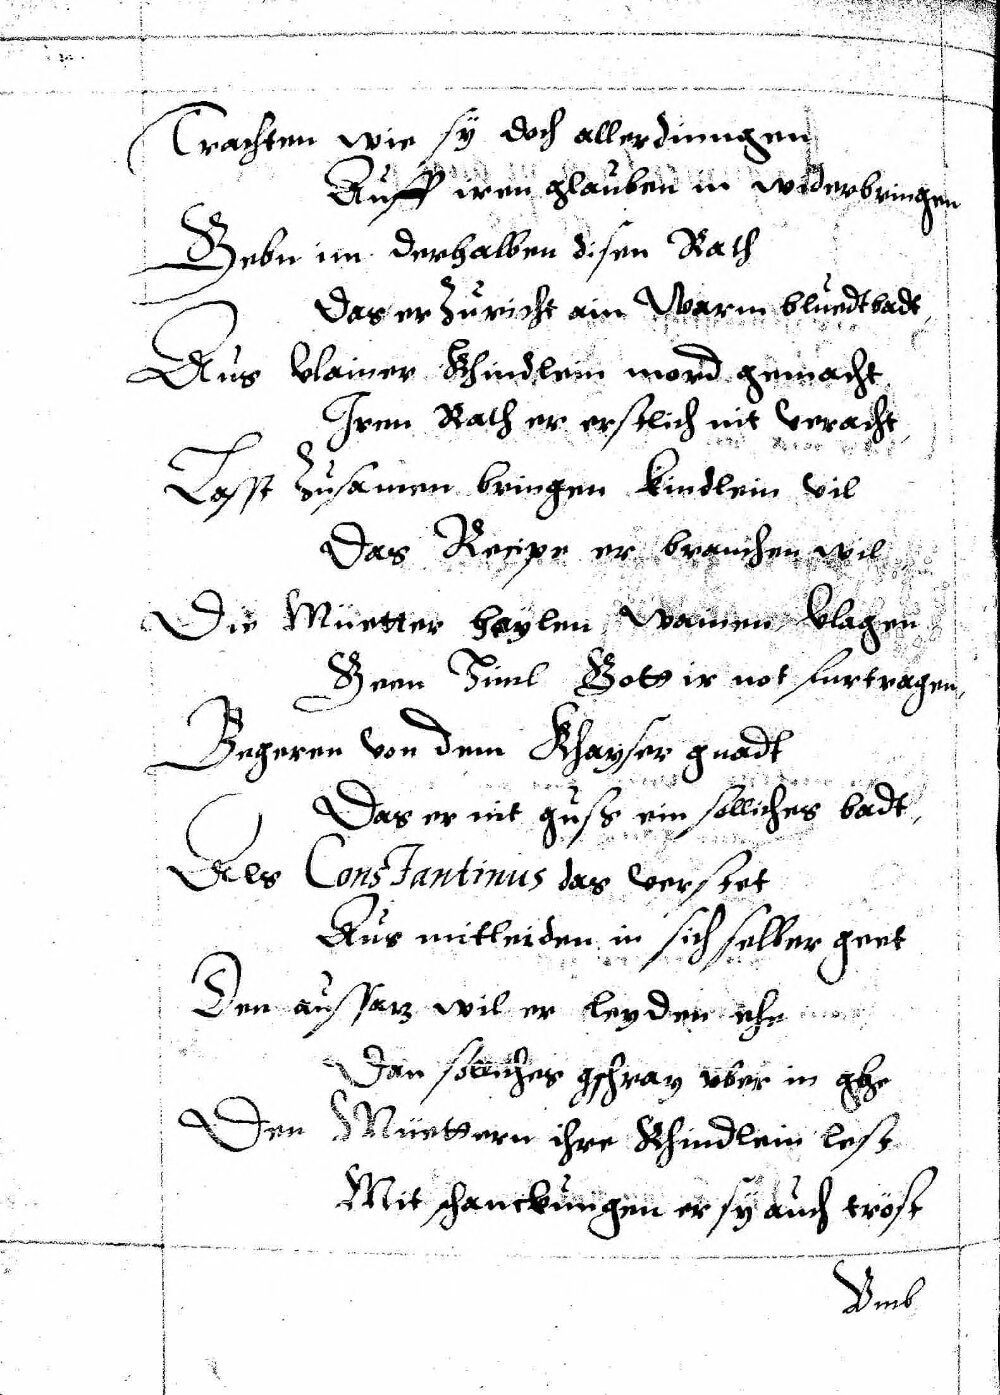 Trachten wie sÿ doch allerdinngen
Auff iren glauben in widerbringen
Gebn im derhalben disen Rath
Das er zuricht ain Warm bluedtbadt,
Aus klainer Khindlein mord gemacht
Irem Rath er erstlich nit veracht,
Lasst zusamen bringen kindlein vil
Das Recipe er brauchen wil
Die Müetter haylen wainen klagen
Geen Himl Gott ir not furtragen,
Begeren von dem Khayser gnadt
Das er nit guss ein solliches badt,
Als Constantinus das verstet
Aus mitleiden in sich selber geet
Den aussatz wil er leyden ehe
Dan solliches gschray vber in gehe
Den Müettern ihre Khindlein lest
Mit schanckungen er sÿ auch tröst
Vmb